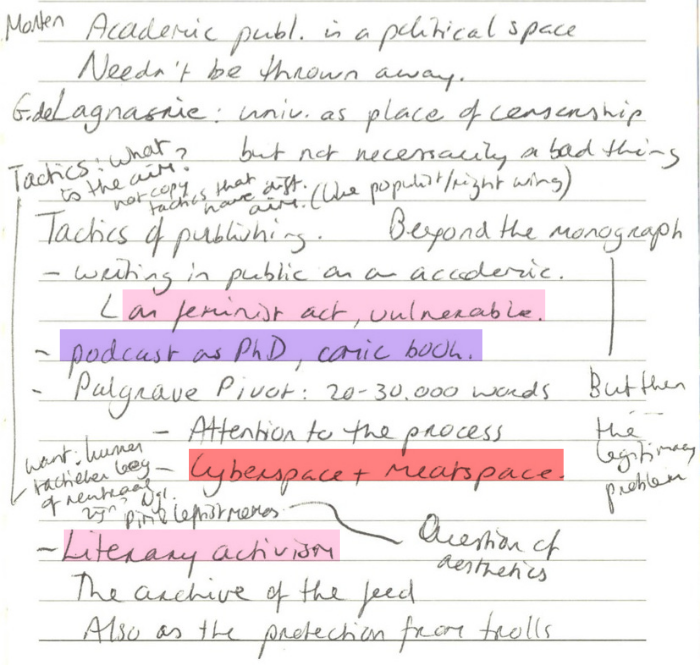 Morten Academic publ. is a political space
Needn't be thrown away.
G. de Lagnasnie: univ. as place of censorship
but not necessarily a bad thing
Tactics: what?
is the aim?
not copy
tactics that
have diff.
aim. (like populist/right wing)
Tactics of publishing. Beyond the monograph
- writing in public as an academic.
as feminist act, vulnerable.
- podcast as PhD, comic book.
- Palgrave Pivot: 20-30.000 words But then
- Attention to the process the
legitimacy
problem
- Cyberspace + meatspace.
want: humor
of
leftist memes
- Literary activism Question of
aesthetics
The archive of the feed
Also as the protection from trolls